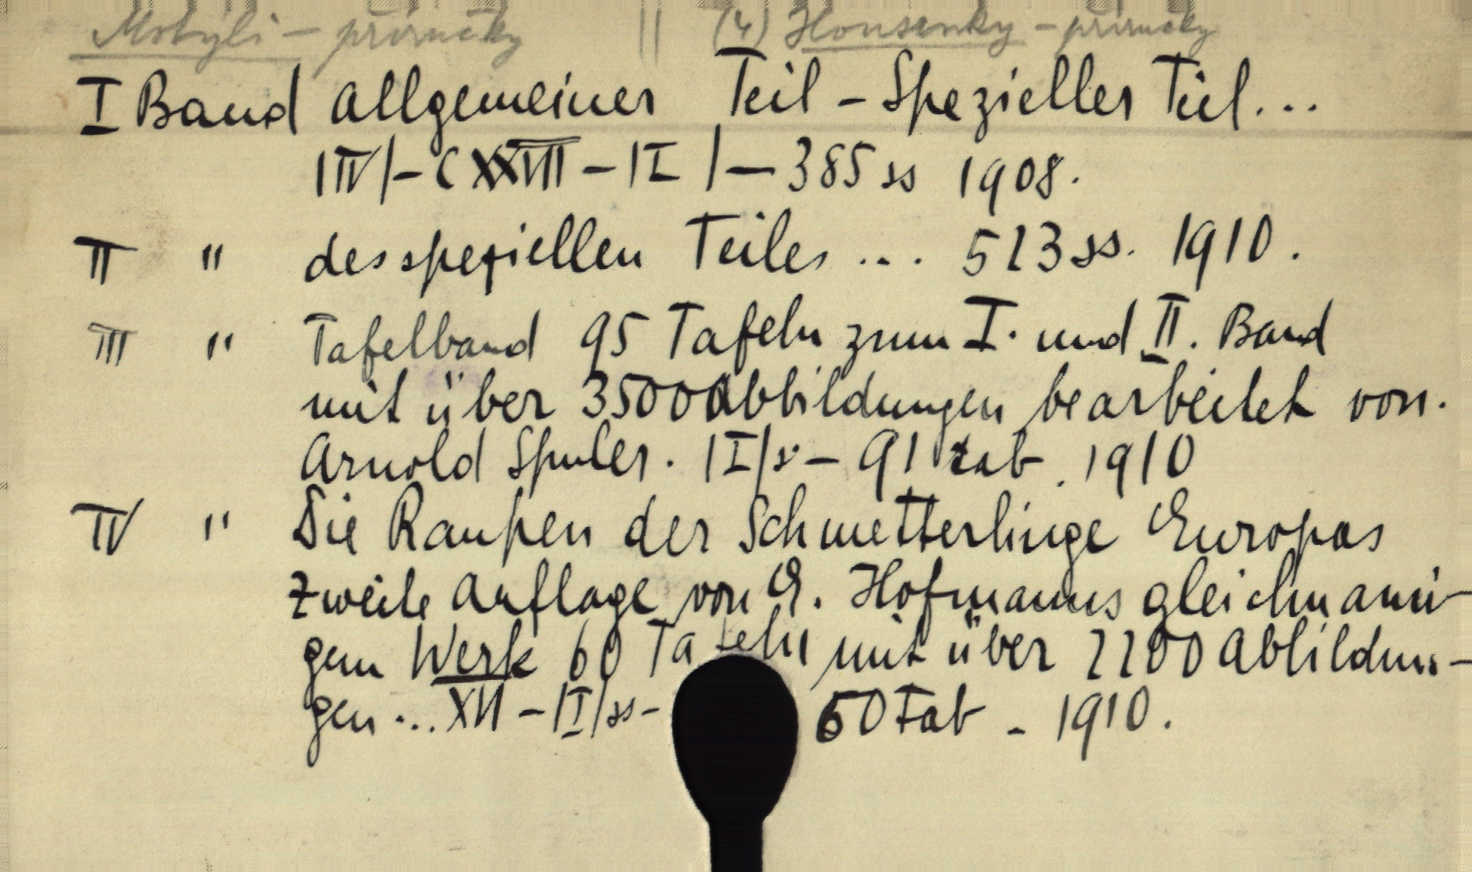 Motýli – příručky || (4) Housenky – příručky
I Band Allgemeiner Teil – Spezieller Teil...
|IV|– CXXVIII – |I| – 385 ss 1908.
II " des speziellen Teiles ... 523 ss. 1910.
III " Tafelband 95 Tafeln zum I. und II. Band
mit über 3500 Abbildungen bearbeitet von.
Arnold Spuler. |I|s. – 91 tab. 1910
IV " Die Raupen der Schmetterlinge Europas
Zweite Auflage von E. Hofmanns gleichnami-
gem Werk 60 Tafeln mit über 2200 Abbildun-
gen ... XVI – |I|ss – 60 Tab – 1910.